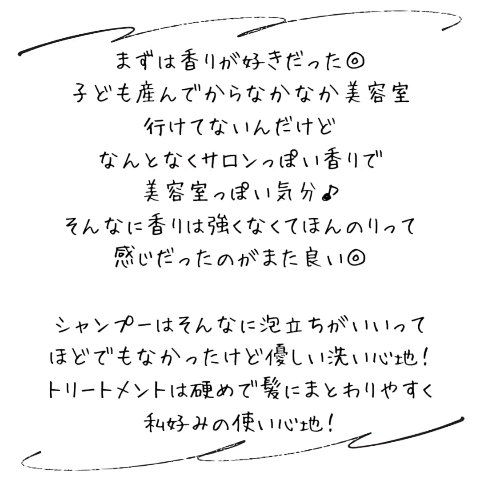 まずは香りが好きだった◎
子ども産んでからなかなか美容室
行けてないんだけど
なんとなくサロンっぽい香りで
美容室っぽい気分♪
そんなに香りは強くなくてほんのりって
感じだったのがまた良い◎
シャンプーはそんなに泡立ちがいいって
ほどでもなかったけど優しい洗い心地!
トリートメントは硬めで髪にまとわりやすく
私好みの使い心地!